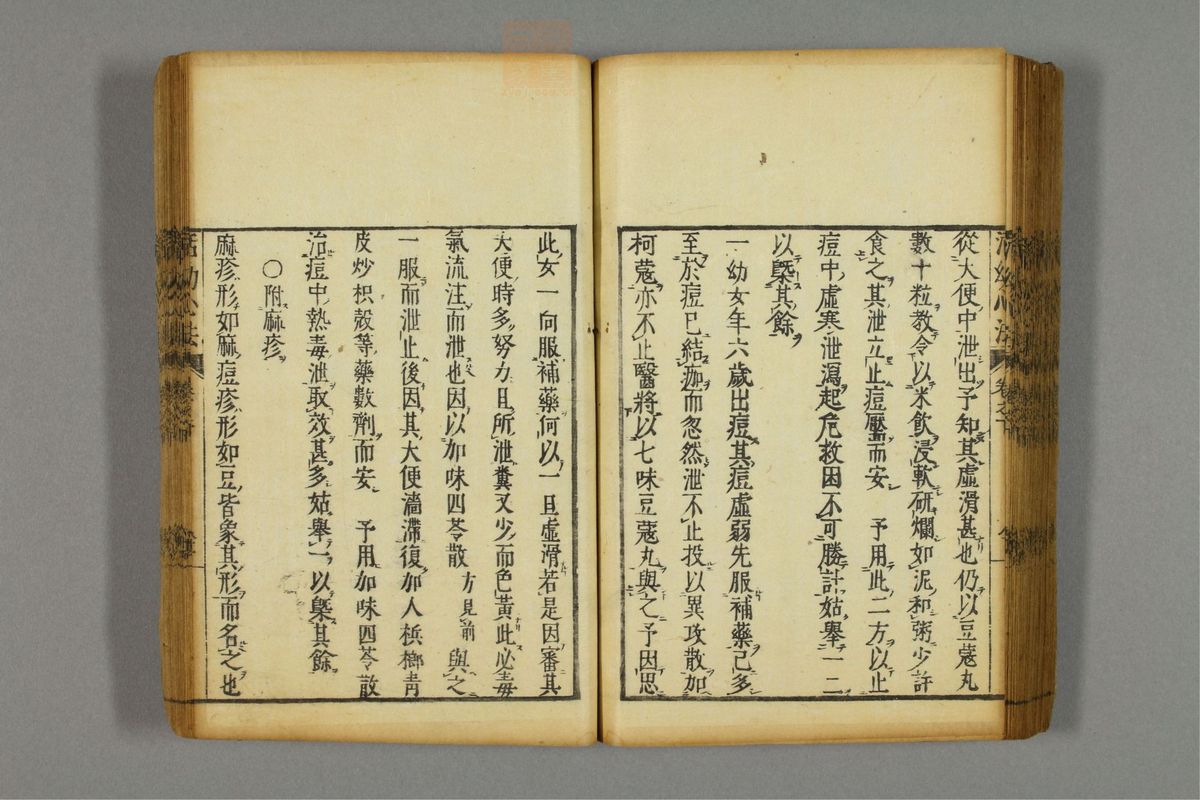 從大便中泄出予知其虛滑甚也仍以豆蔻丸
數十粒教令以米飲浸軟研爛如泥和粥少許
食之其泄立止痘靨而安 予用此二方以止
痘中虛寒泄瀉起危救困不可勝計姑舉一二
以槩其餘
一幼女年六歲出痘其痘虛弱先服補藥已多
至於痘已結痂而忽然泄不止投以異攻散加
柯蔻亦不止醫將以七味豆蔻丸與之予因思
此女一向服補藥何以一旦虛滑若是因審其
大便時多努力且所泄糞又少而色黃此必毒
氣流注而泄也因以加味四苓散 方見前 與之
一服而泄止後因其大便濇滯復加人梹榔青
皮炒枳殼等藥數劑而安 予用加味四苓散
治痘中熱毒泄取效甚多姑舉一以槩其餘
〇附麻疹
麻疹形如麻痘疹形如豆皆象其形而名之也
活幼心法